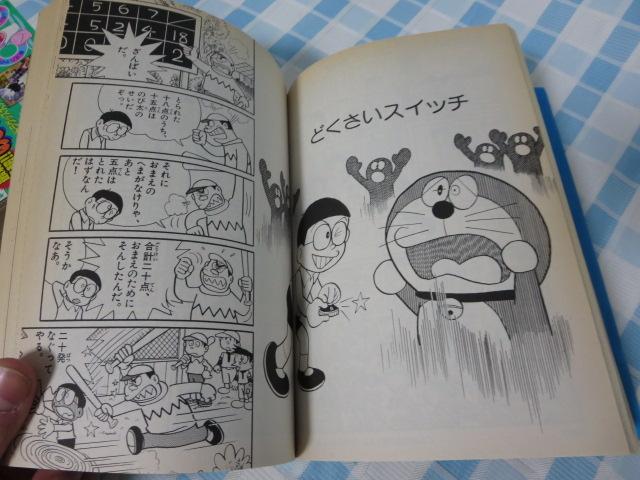 どくさいスイッチ
5 6 7
5 2 4 18
0 0 2
ざんぱい
だ。
とられた
十八点のうち、
十五点は
のび太の
せいだ
ぞっ。
それに
おまえの
へまがなけりゃ、
あと
五点は
とれた
はずなん
だ！
合計二十点、
おまえのために
そんしたんだ。
そうか
なあ。
二十発
なぐって
やる。